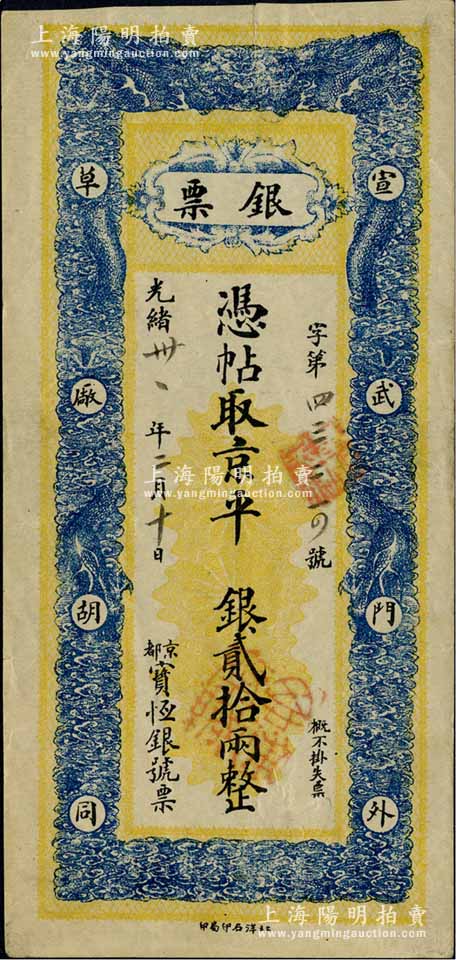 上海陽明拍賣
www.yangmingauction.com
銀票
宣武門外
草廠胡同
字第四三三一〇號
概不掛失票
憑帖取京平銀貳拾兩整
光緒卅、年二月十日
京都寶恆銀號票
上海陽明拍賣
www.yangmingauction.com
北洋石印局印
上海陽明拍賣
www.yangmingauction.com